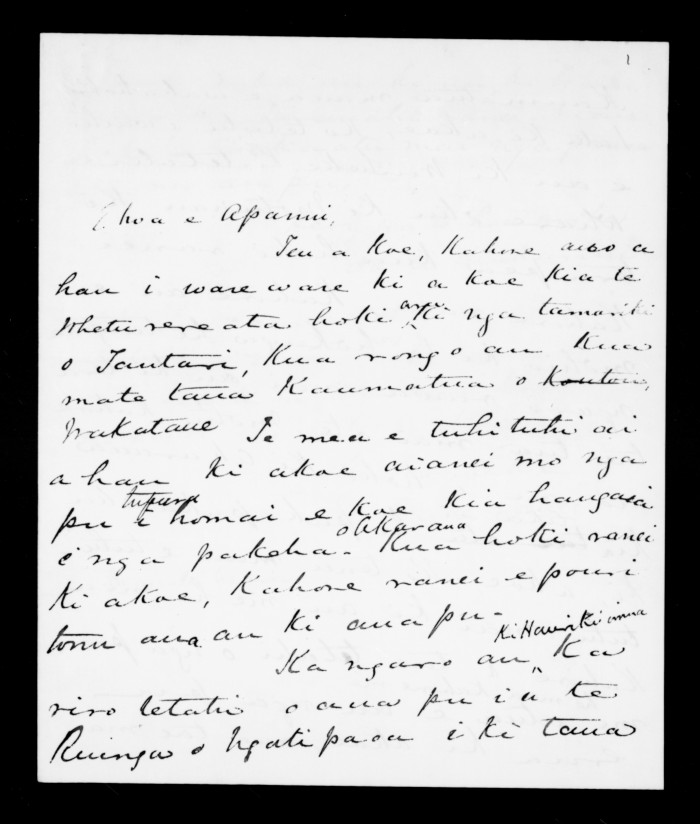 1
E hoa e Apanui,
Tena Koe, Kahore ano a
hau i ware ware ki a koe kia te
Whetu rere ata hoki anu Ki nga tamariki
o Tautari, Kua rongo au Kua
mate tana Kaumatua o Koutou,
Wakatane Te mea e tuhituhi ai
a hau Ki akoe aianei mo nga
pu tupara i homai e koe Kia hangaia
e nga pakeha o Akarana. Kua hoki ranei
Ki akoe, Kahore ranei e pouri
tonu ana au Ki aua pu.
Ka ngaro au Ki Hauriki inua Ka
riro etahi o aua pu i a te
Runga o Ngatipaoa i ki tana